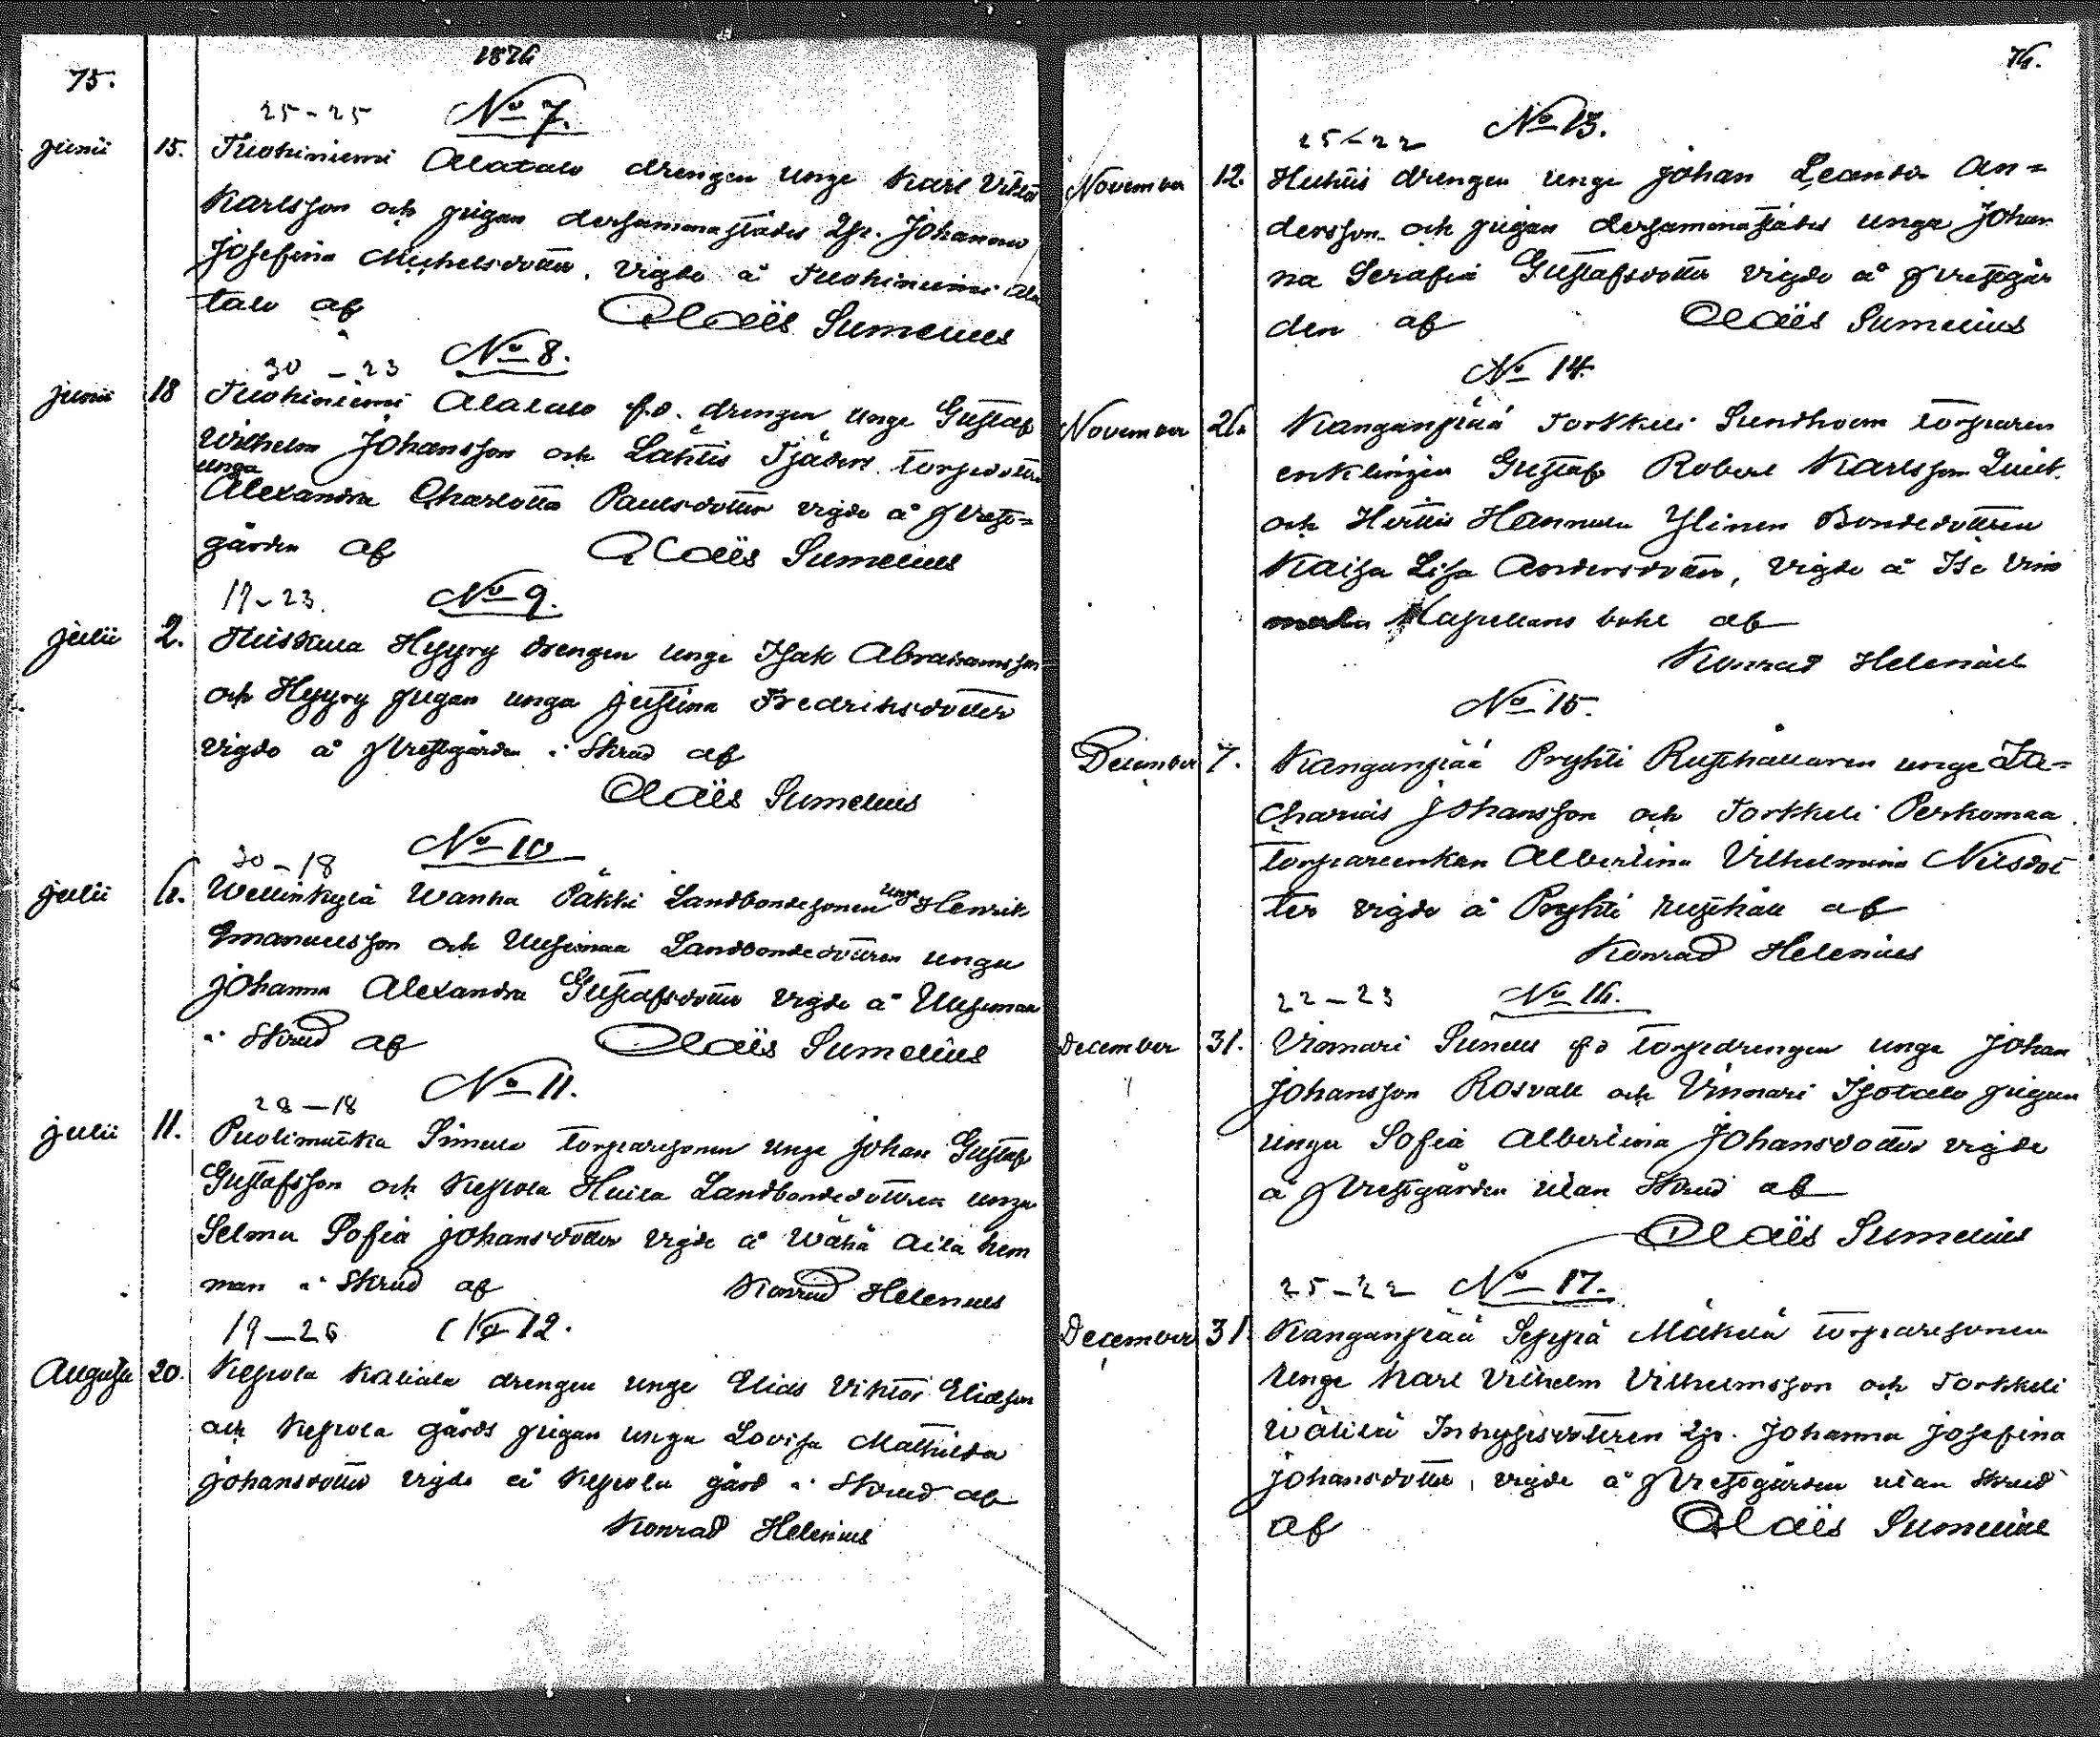 1876
75.
25-25 No 7.
Junii 15. Tuohiniemi Alatalo drengen unge Karl Viktor
Karlsson och pigan dersammastädes Johanna
Josefina Michelsdotter, vigde å Tuohiniemi Ala
talo af Claës Sumelius
30-23 No 8.
Junii 18 Tuohiniemi Alatalo f.d. drengen unge Gustaf
Wilhelm Johansson och Lahtis Tjäder torpedottren
unga
Alexandra Charlotta Paulsdotter vigde å Prest=
gården af Claës Sumelius
19-23. No 9.
Julii 2. Huiskula Hyyry drengen unge Isak Abrahamsson
och Hyyry pigan unga Justina Fredriksdotter
vigde å Prestgården i Skrud af
Claës Sumelius
30-18 No 10
Julii 6. Wellinkylä Wanha Päkki Landbondesonen unge Henrik
Emanuelsson och Uusimaa Landbondedottren unga
Johanna Alexandra Gustafsdotter vigde å Uusimaa
i Skrud af Claës Sumelius
28-18 No 11.
Julii 11. Puolimatka Simula torparesonen unge Johan Gustaf
Gustafsson och Kepola Huila Landbondedottren unga
Selma Sofia Johansdotter vigde å Wähä Aila hem
man i Skrud af Konrad Helenius
19-26 No 12.
Augusti 20. Kepola Kaliala drengen unge Elias Viktor Eliasson
och Kepola gårds pigan unga Lovisa Mathilda
Johansdotter vigde å Kepola gård i Skrud af
Konrad Helenius
76.
25-22 No 13.
November 12. Huhtis drengen unge Johan Leander An=
dersson och pigan dersammastädes unga Johan
na Serafia Gustafsdotter vigde å Prestgår
den af Claës Sumelius
No 14.
November 26 Kanganpää Torkkeli Sundholm torparen
enklingen Gustaf Robert Karlsson
och Herttis Hannula Ylinen Bondedottren
Kaisa Lisa Andersdotter, vigde å Iso Vim
mala Kapellans bohl af
Konrad Helenius
No 15.
December 7. Kanganpää Pryhti Rusthållaren unge Za=
charias Johansson och Torkkeli Perkomaa
torpareenkan Albertina Vilhelmina Nilsdot
ter vigde å Pryhti rusthåll af
Konrad Helenius
22-23 No 16.
December 31. Vinnari Sunell f d torpedrengen unge Johan
Johansson Rosvall och Vinnari Isotalo pigan
unga Sofia Albertina Johansdotter vigde
å Prestgården utan Skrud af
Claës Sumelius
25-22 No 17.
December 31 Kanganpää Seppä Mäkelä torparesonen
Unge Karl Vilhelm Vilhelmsson och Torkkeli
Wälilä Inhysesdottren Johanna Josefina
Johansdotter, vigde å Prestgården utan Skrud
af Claës Sumelius